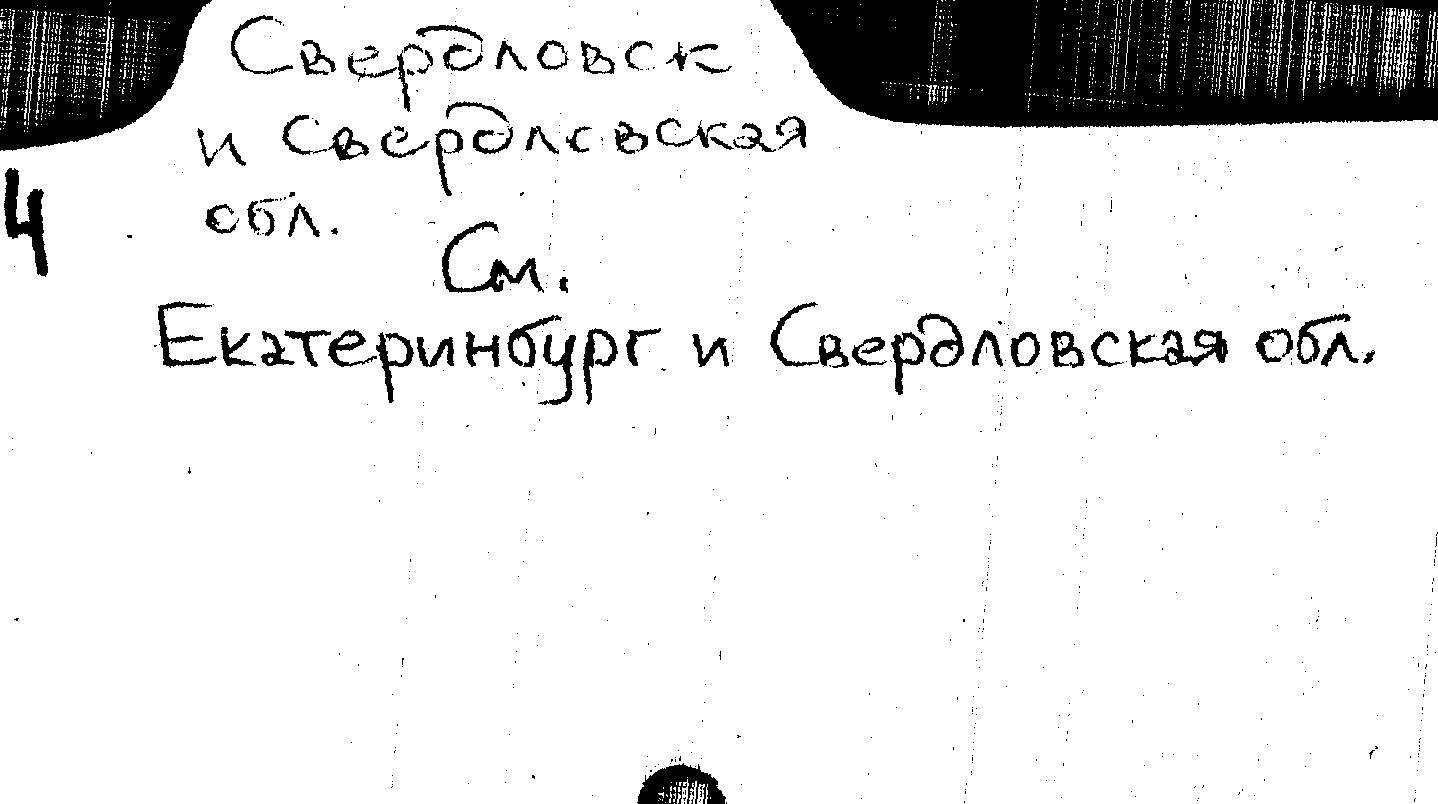 Свердловск
и Свердловская
обл.
4
См.
Екатеринбург и Свердловская обл.